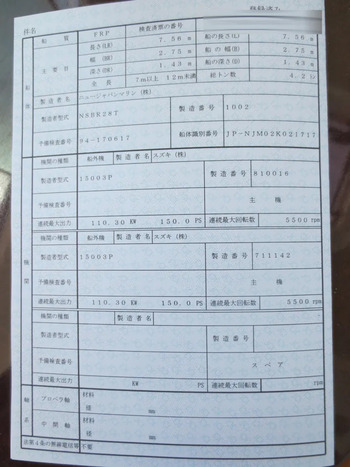 件名
船 質 FRP 検査済票の番号
船体 主要目
長さ(L) 7.56 m 船の長さ(L) 7.56 m
幅(B) 2.75 m 船の幅(B) 2.75 m
深さ(D) 1.43 m 船の深さ(D) 1.43 m
全長 7m以上 12m未満 総トン数
製造者名 ニュージャパンマリン(株)
製造者型式 NSBK287 製造番号 1002
予備検査番号 94-170617 船体識別番号 JP-NJM02K021717
機関
機関の種類 船外機 製造者名 スズキ(株)
製造者型式 15003P 製造番号 810016
予備検査番号 主機
連続最大出力 110.30 KW 150.0 PS 連続最大回転数 5500 rpm
機関の種類 船外機 製造者名 スズキ(株)
製造者型式 15003P 製造番号 711142
予備検査番号 主機
連続最大出力 110.30 KW 150.0 PS 連続最大回転数 5500 rpm
機関の種類 製造者名
製造者型式 製造番号
予備検査番号 スペア
連続最大出力 KW PS 連続最大回転数 rpm
軸系
プロペラ軸 材料
径 mm
中間軸 材料
径 mm
法第4条の無線電信等 不要